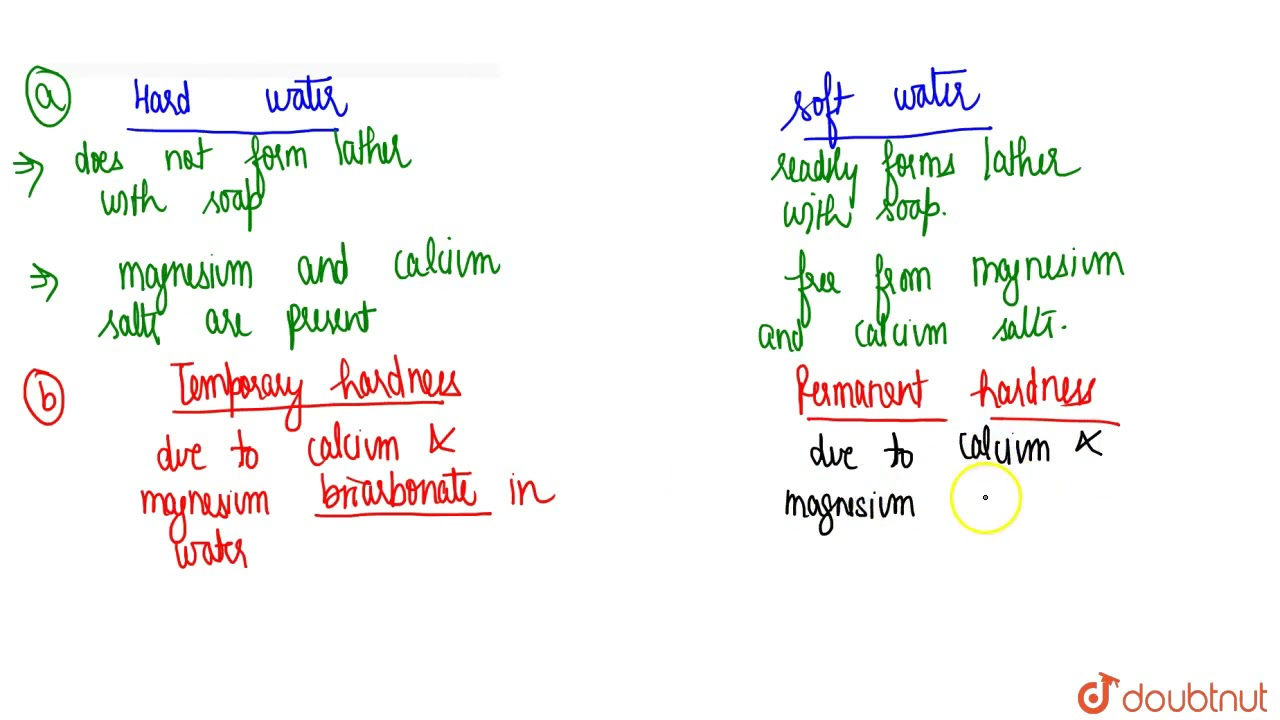 a Hard water
⇒ does not form lather
with soap
⇒ magnesium and calcium
salts are present
soft water
readily forms lather
with soap.
free from magnesium
and calcium salts.
b Temporary hardness
due to calcium &
magnesium bricarbonate in
water
Permanent hardness
due to calcium &
magnisium
doubtnut